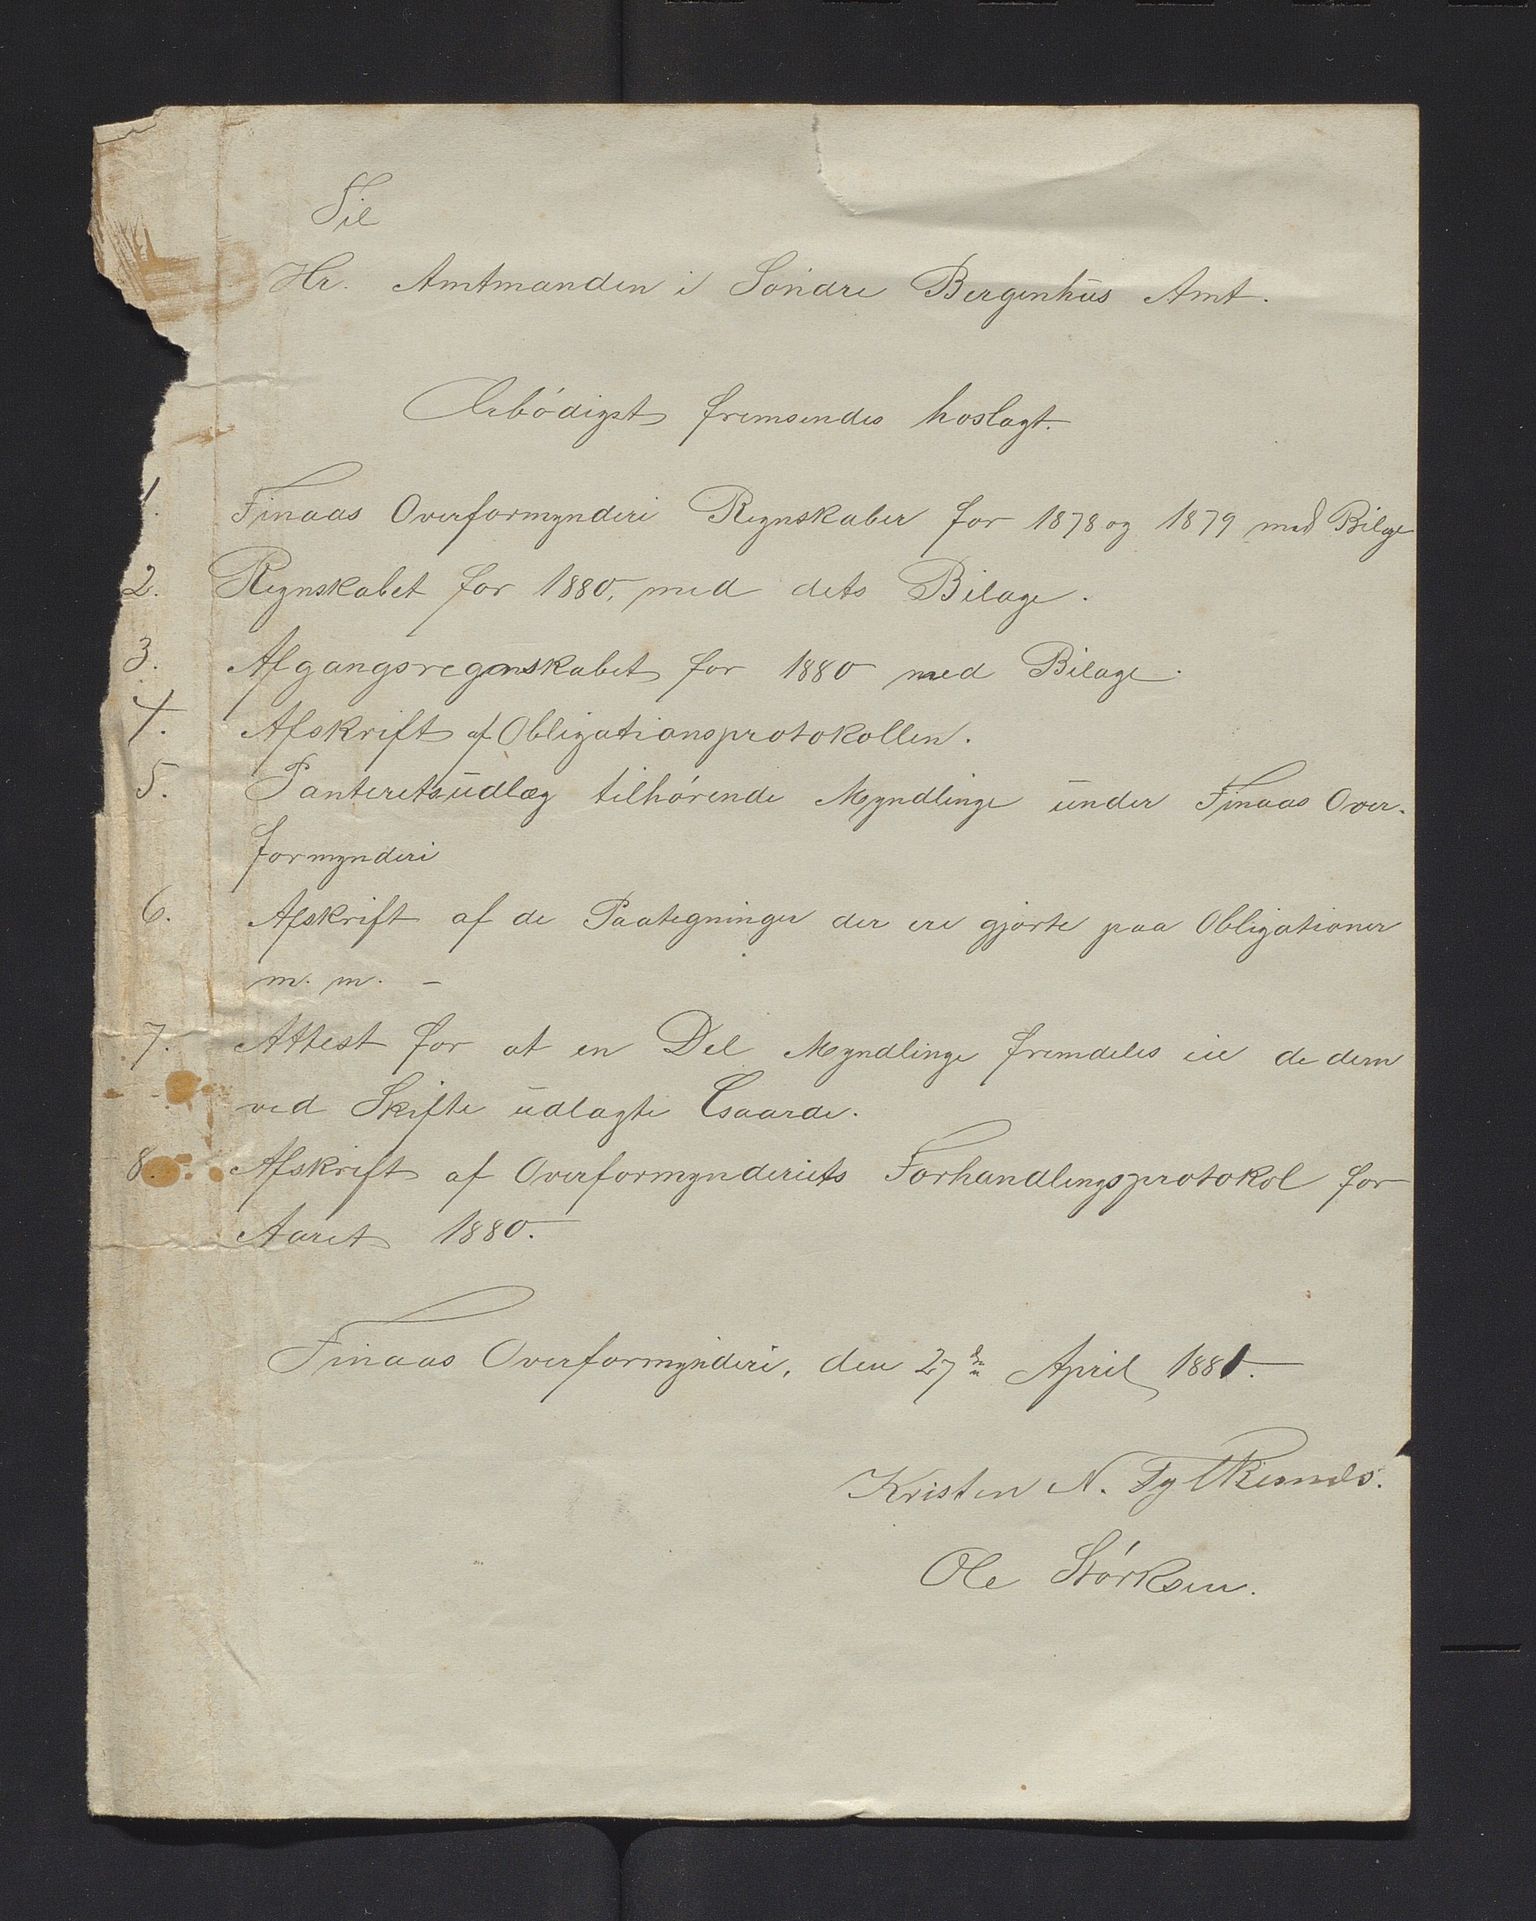 Til
Hr. Amtmanden i Søndre Bergenhus Amt.
Ærbødigst fremsendes hoslagt.
1. Finaas Overformynderi Regnskaber for 1878 og 1879 med Bilage
2. Regnskabet for 1880, med dets Bilage.
3. Afgangsregnskabet for 1880 med Bilage.
4. Afskrift af Obligationsprotokollen.
5. Panteretsudlæg tilhørende Myndlinge under Finaas Over-
formynderi
6. Afskrift af de Paategninger der ere gjorte paa Obligationer
m. m. -
7. Attest for at en Del Myndlinge fremdeles eie de dem
ved Skifte udlagte Gaarde.
8. Afskrift af Overformynderiets Forhandlingsprotokol for
Aaret 1880.
Finaas Overformynderi, den 27de April 1881.
Kristen N. Fylkesnes.
Ole Størksen.